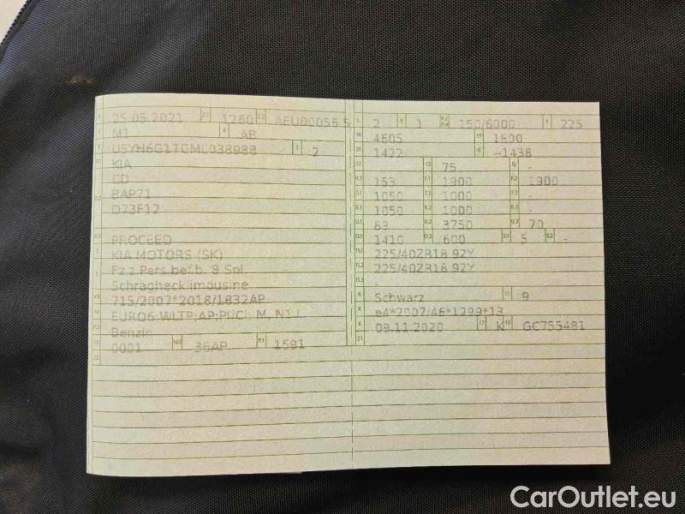 25.05.2021 1260 AEU00056 5
M1 AB
U5YH6G1TGML038988 2
KIA
CD
BAP71
D73F12
PROCEED
KIA MOTORS (SK)
Fz.z.Pers.bef.b. 8 Spl.
Schräghecklimousine
715/2007*2018/1832AP
EURO6;WLTP;AP;PI/CI M, N1 I
Benzin
0001 36AP 1591
2 1 150/6000 225
4605 1800
1422 -1438
75 -
153 1900 1900
1050 1000 -
1050 1000 -
83 3750 70
1410 600 5 -
225/40ZR18 92Y
225/40ZR18 92Y
-
Schwarz 9
e4*2007/46*1299*13
09.11.2020 K GC755481
CarOutlet.eu